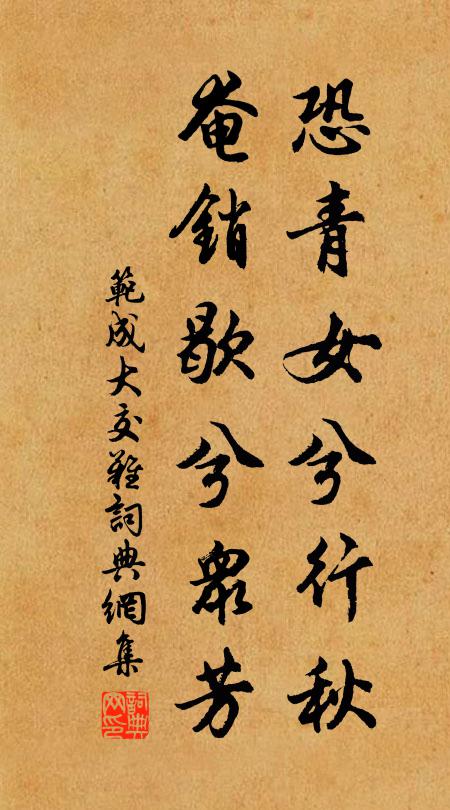 恐青女兮行秋
奄銷歇兮衆芳
範成大交難詞典網集
詞典網印